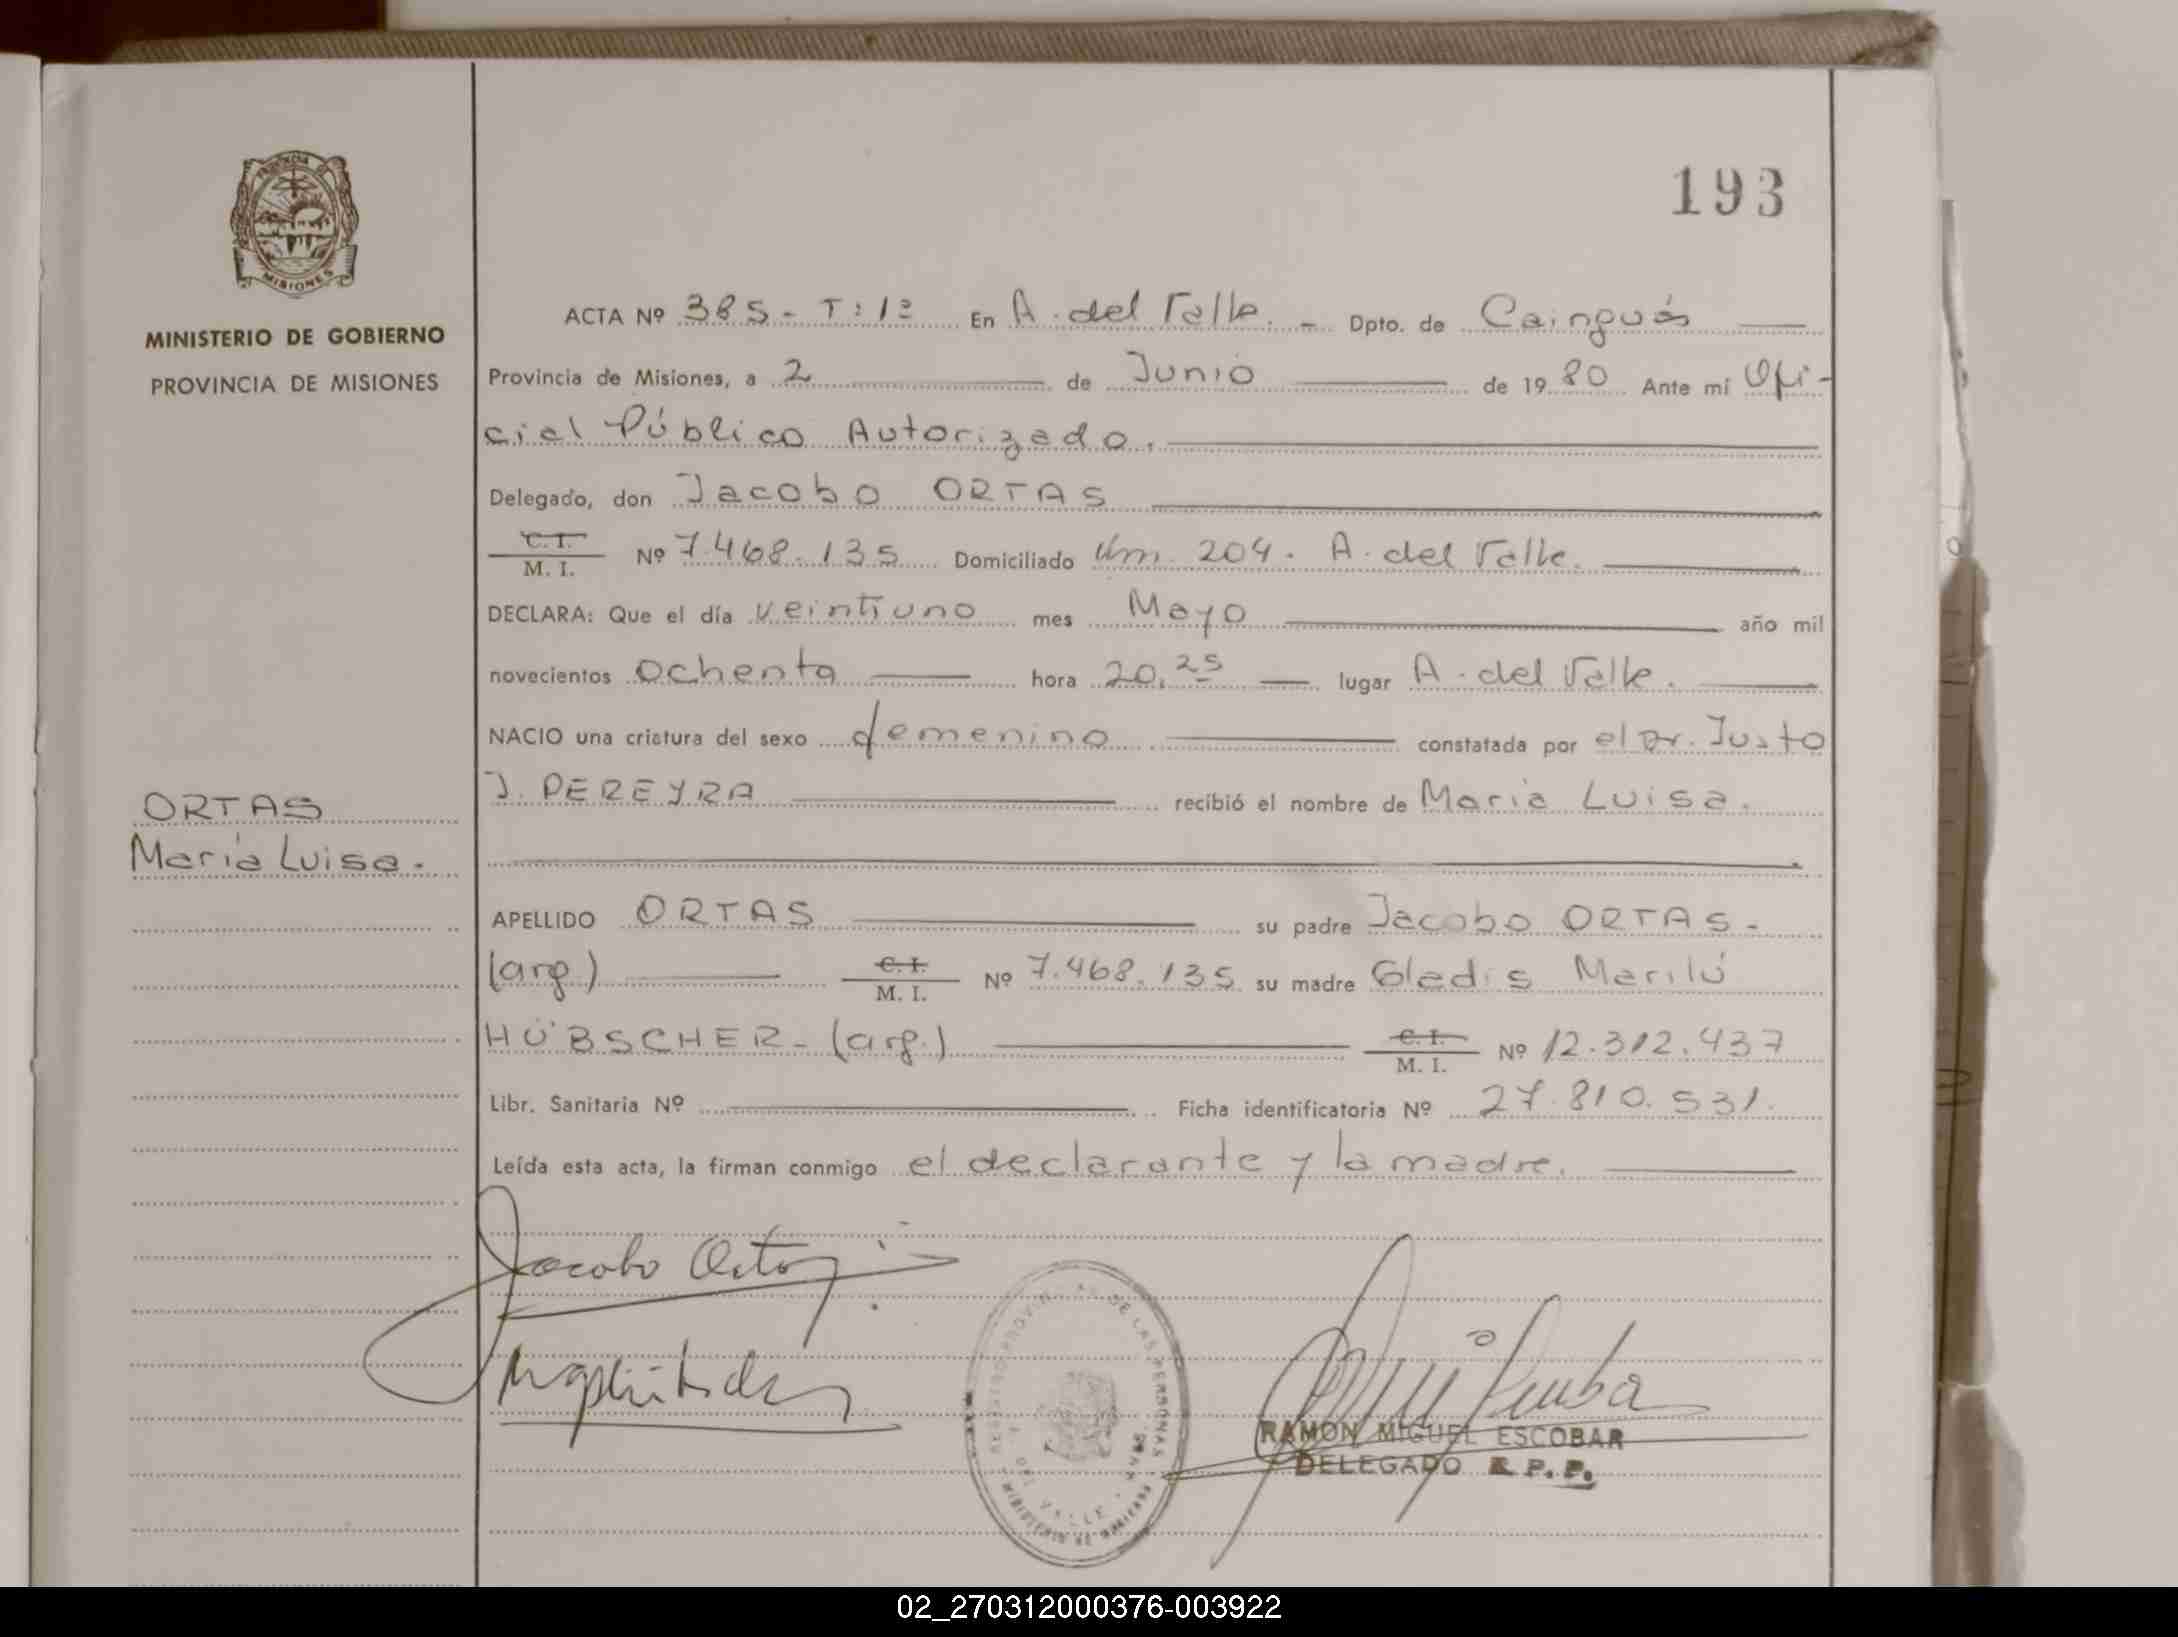 193
PROVINCIA DE
MISIONES
MINISTERIO DE GOBIERNO
PROVINCIA DE MISIONES
ORTAS
María Luisa.
ACTA Nº 385 - T: 1º En A. del Valle. - Dpto. de Cainguás
Provincia de Misiones, a 2 de Junio de 1980 Ante mí Ofi-
cial Público Autorizado.
Delegado, don Jacobo ORTAS
C. I. M. I. Nº 7.468.135 Domiciliado Km. 204. A. del Valle.
DECLARA: Que el día veintiuno mes Mayo año mil
novecientos ochenta hora 20,25 lugar A. del Valle.
NACIO una criatura del sexo femenino constatada por el Dr. Justo
J. PEREYRA recibió el nombre de María Luisa.
APELLIDO ORTAS su padre Jacobo ORTAS -
(arg.) C. I. M. I. Nº 7.468.135 su madre Gladis Marilú
HÜBSCHER - (arg.) C. I. M. I. Nº 12.312.437
Libr. Sanitaria Nº Ficha identificatoria Nº 27.810.531.
Leída esta acta, la firman conmigo el declarante y la madre.
Jacobo Ortas
REGISTRO PROVINCIAL DE LAS PERSONAS
DEL VALLE
RAMON MIGUEL ESCOBAR
DELEGADO R. P. P.
02_270312000376-003922